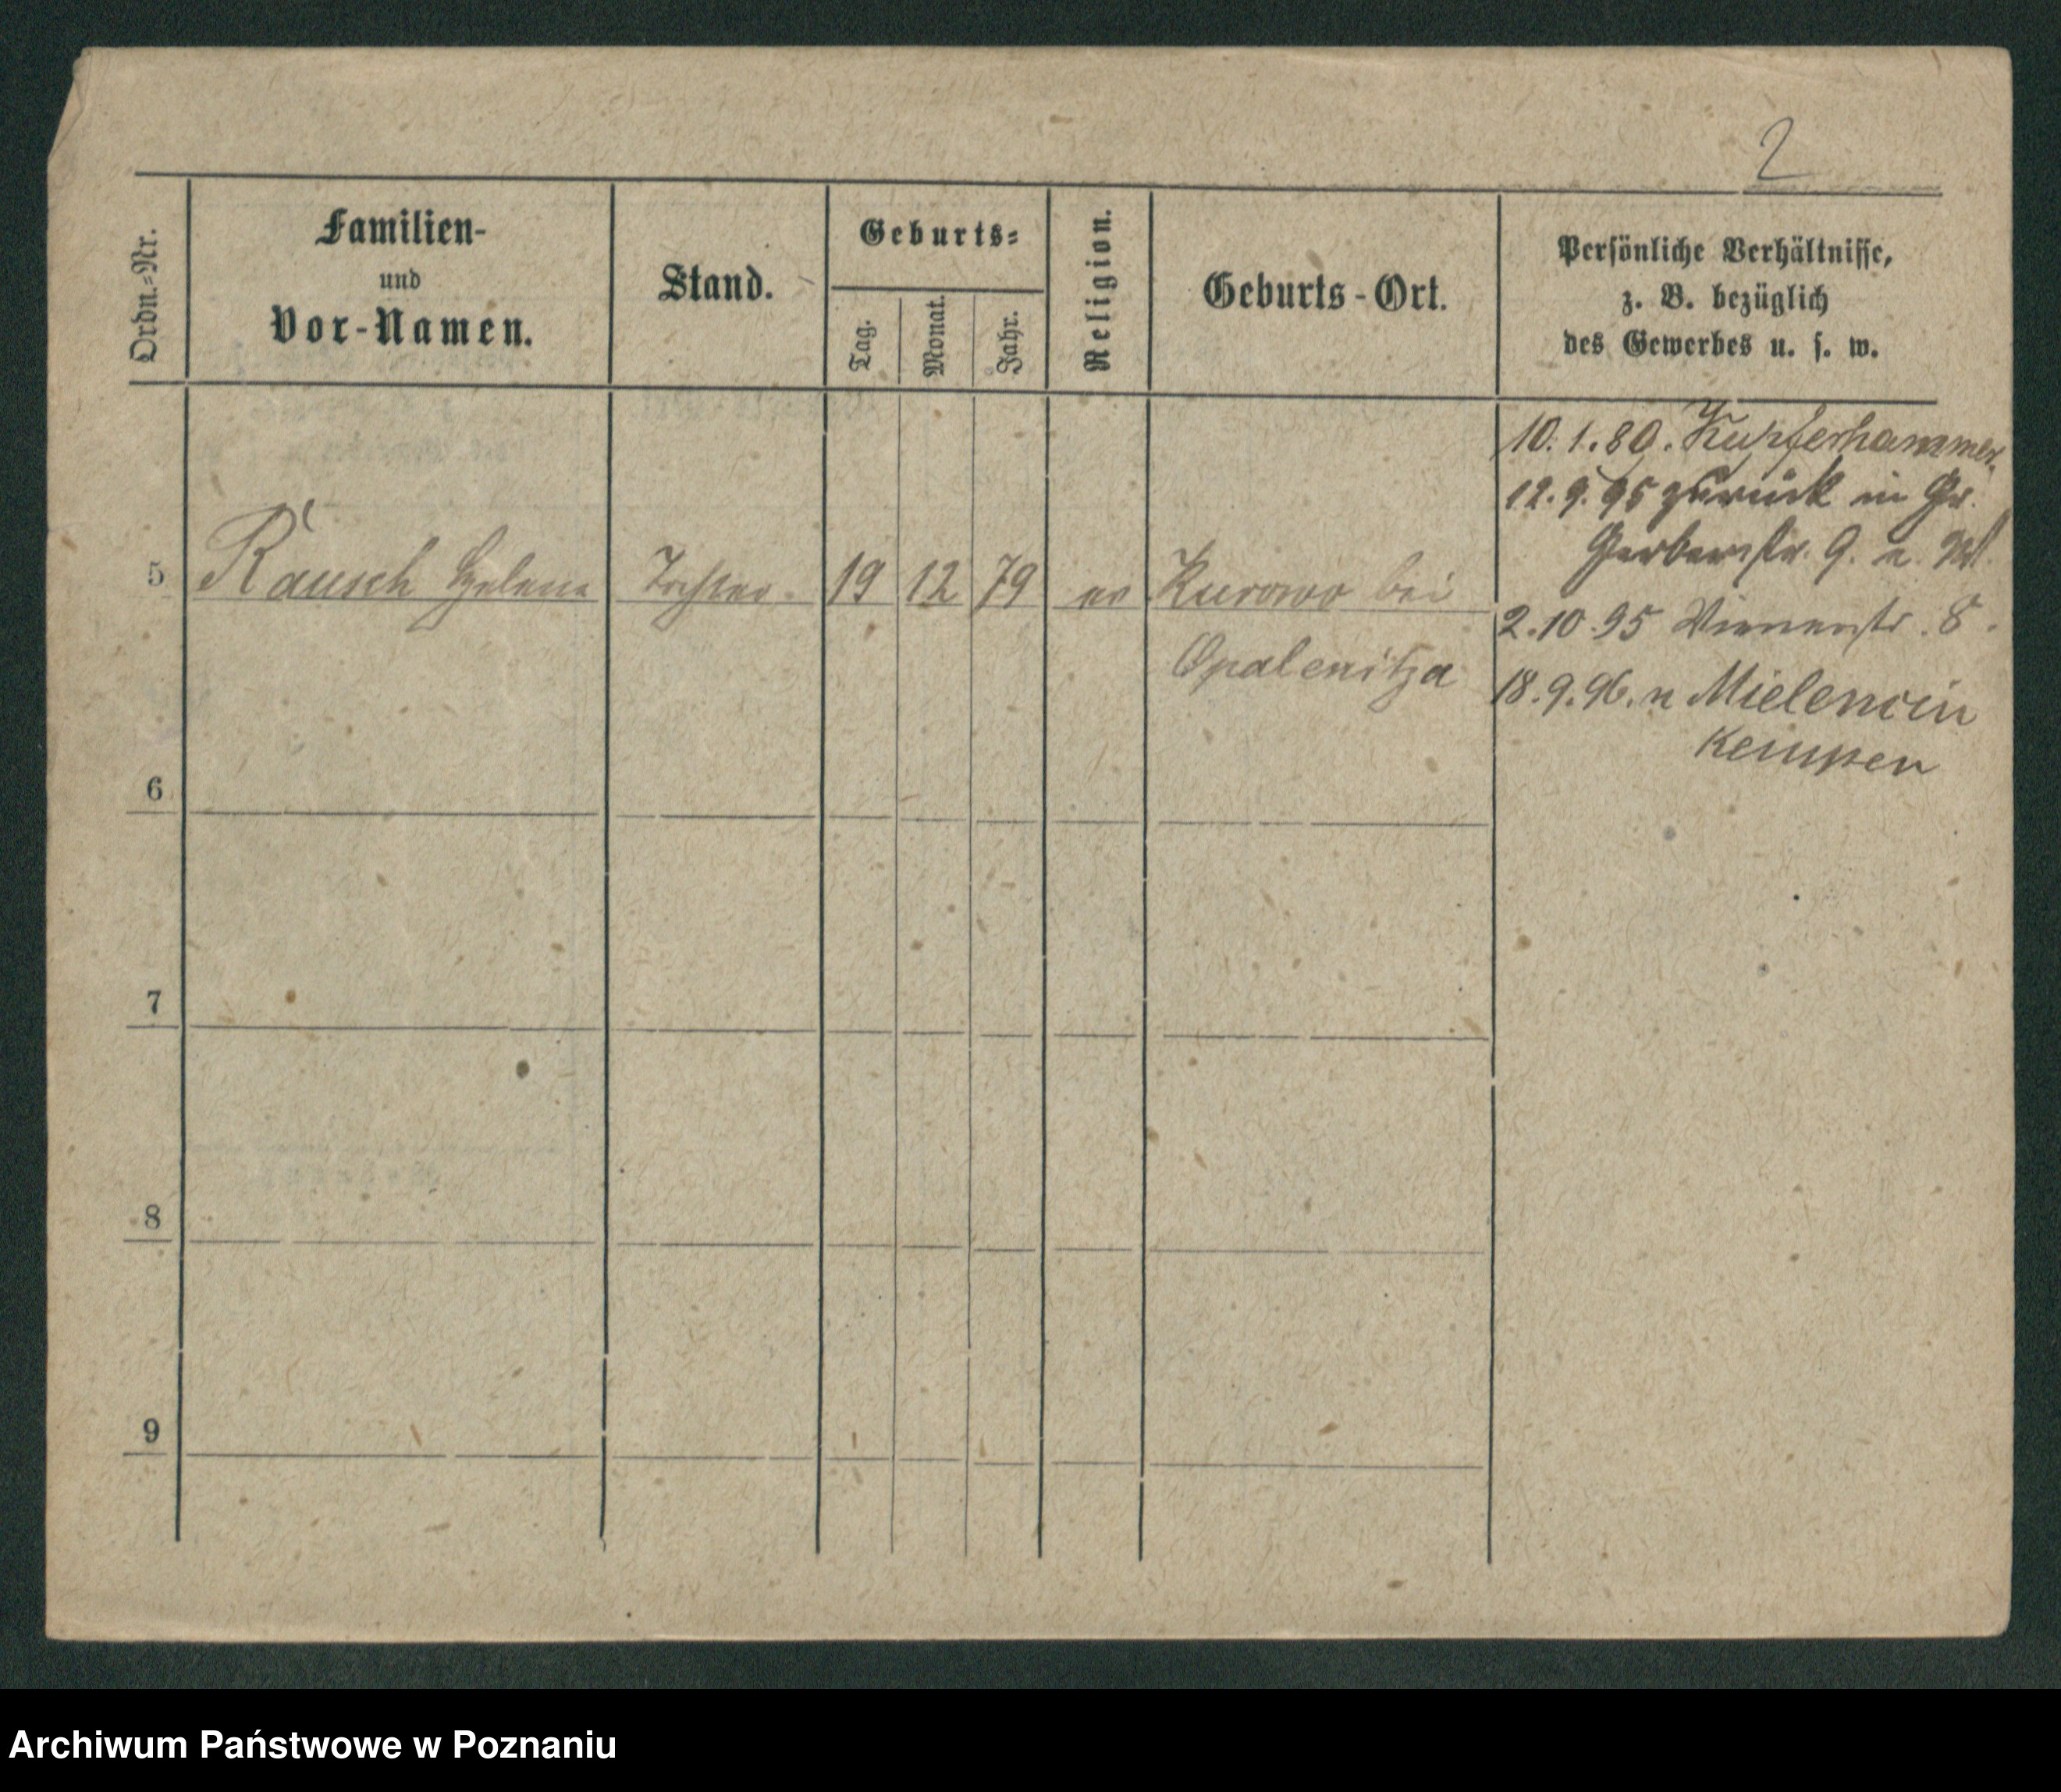 2
Ordn.-Nr.
Familien-
und
Vor-Namen.
Stand.
Geburts-
Tag.
Monat.
Jahr.
Religion.
Geburts-Ort.
Persönliche Verhältnisse,
z. B. bezüglich
des Gewerbes u. s. w.
10.1.80. Kupferhammer
12.9.95 zurück in Gr.
Gerberstr. 9. a. W.
5 Rausch Helene Tochter 19 12 79 ev Kurowo bei
2.10.95 Wienerstr. 8.
Opalenitza
18.9.96. n Mielencin
Kempen
6
7
8
9
Archiwum Państwowe w Poznaniu